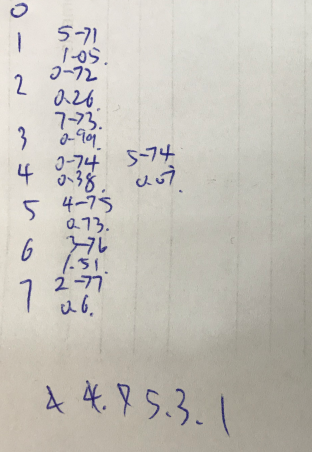 0
1 5-71
1.05.
2 0-72
0.26.
3 7-73.
0.99.
4 0-74 5-74
0.38. 0.07.
5 4-75
0.73.
6 3-76
1.51.
7 2-77
0.6.
4.7 5.3.1